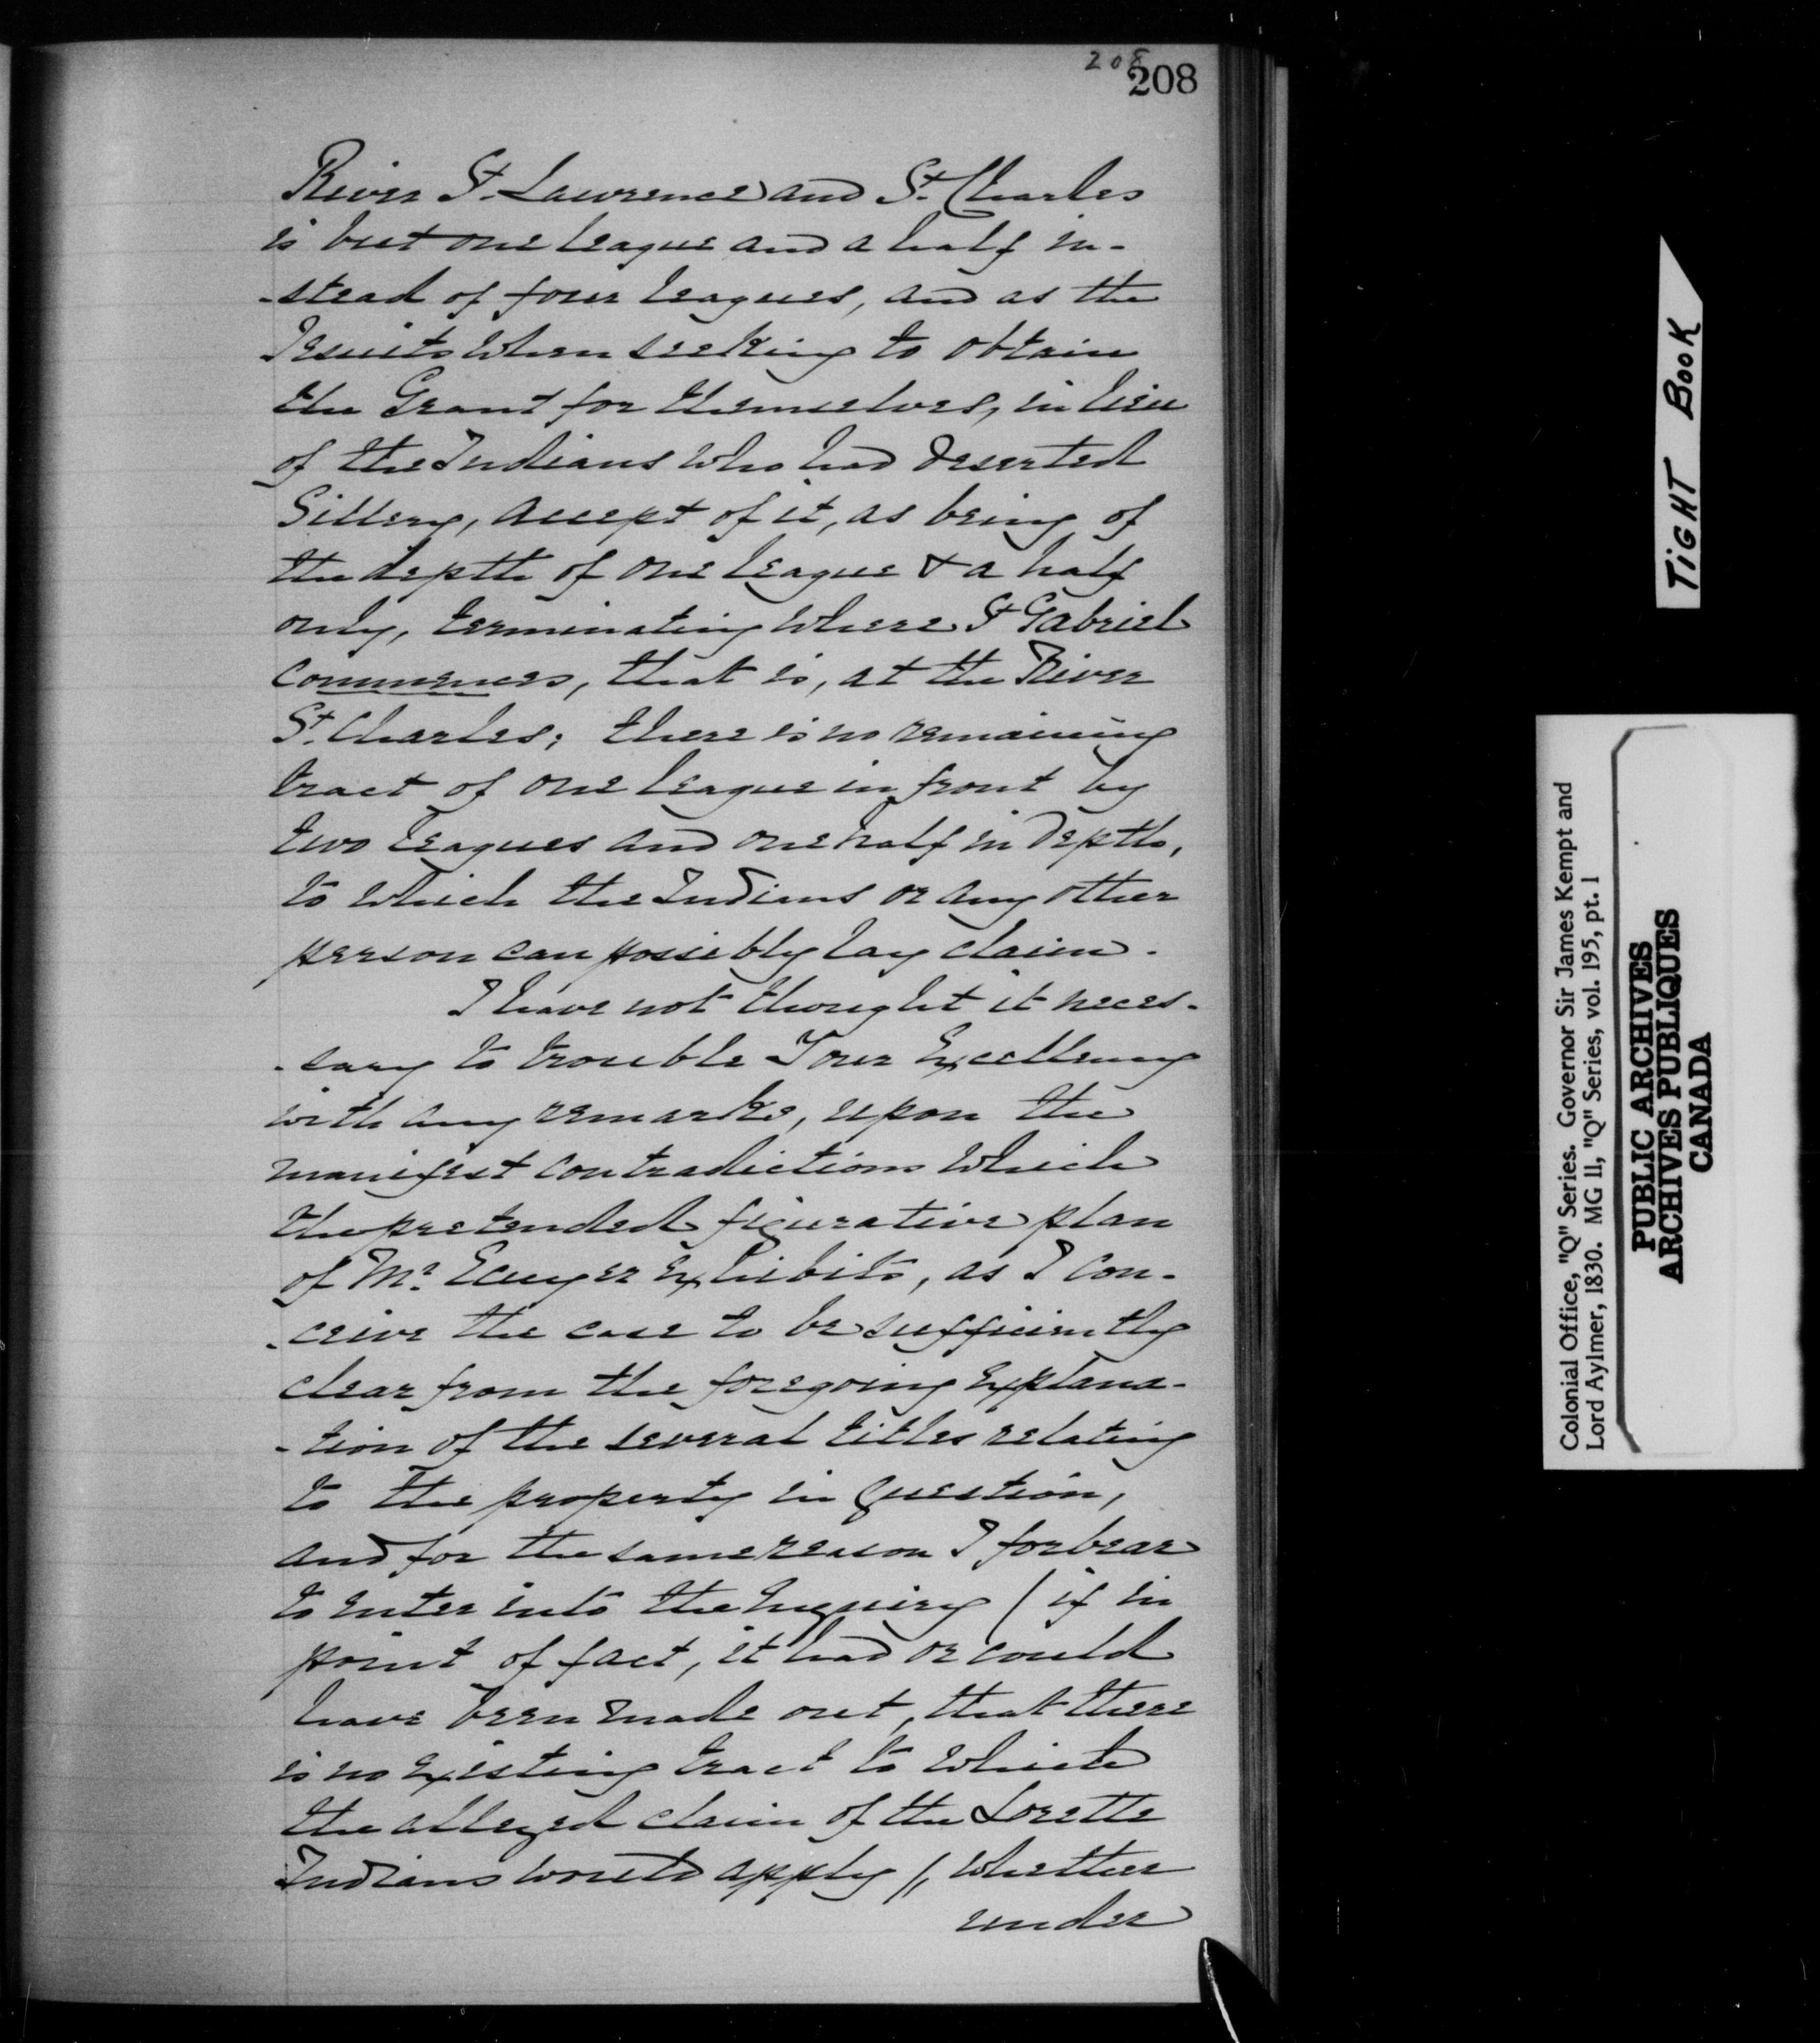 208
208
River St. Lawrence and St. Charles
is but one league and a half in-
-stead of four leagues, and as the
Jesuits when seeking to obtain
the Grant for themselves, in lieu
of the Indians who had deserted
Sillery, accept of it, as being of
the depth of one league & a half
only, terminating where St Gabriel
commences, that is, at the River
St. Charles; there is no remaining
tract of one league in front by
two leagues and one half in depth,
to which the Indians or any other
person can possibly lay claim.
I have not thought it neces-
-sary to trouble Your Excellency
with any remarks, upon the
manifest contradictions which
the pretended figurative plan
of Mr. Ecuyer exhibits, as I con-
-ceive the case to be sufficiently
clear from the foregoing explana-
-tion of the several titles relating
to the property in question,
and for the same reason I forbear
to enter into the enquiry (if in
point of fact, it had or could
have been made out, that there
is no existing tract to which
the alleged claim of the Lorette
Indians would apply), whether
under
TIGHT BOOK
Colonial Office, "Q" Series. Governor Sir James Kempt and
Lord Aylmer, 1830. MG 11, "Q" Series, vol. 195, pt. 1
PUBLIC ARCHIVES
ARCHIVES PUBLIQUES
CANADA